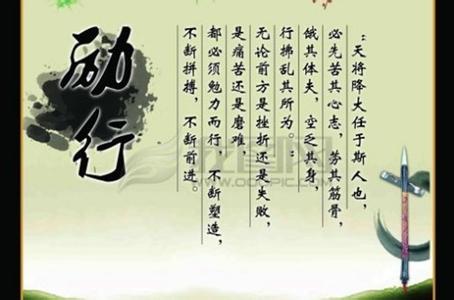 ：天将降大任于斯人也，
必先苦其心志，劳其筋骨，
饿其体夫，空乏其身，
行拂乱其所为。：
无论前方是挫折还是失败，
是痛苦还是磨难
都必须勉力而行，不断塑造，
不断拼搏，不断前进。
励行
我图网
WWW.OOOPIC.COM